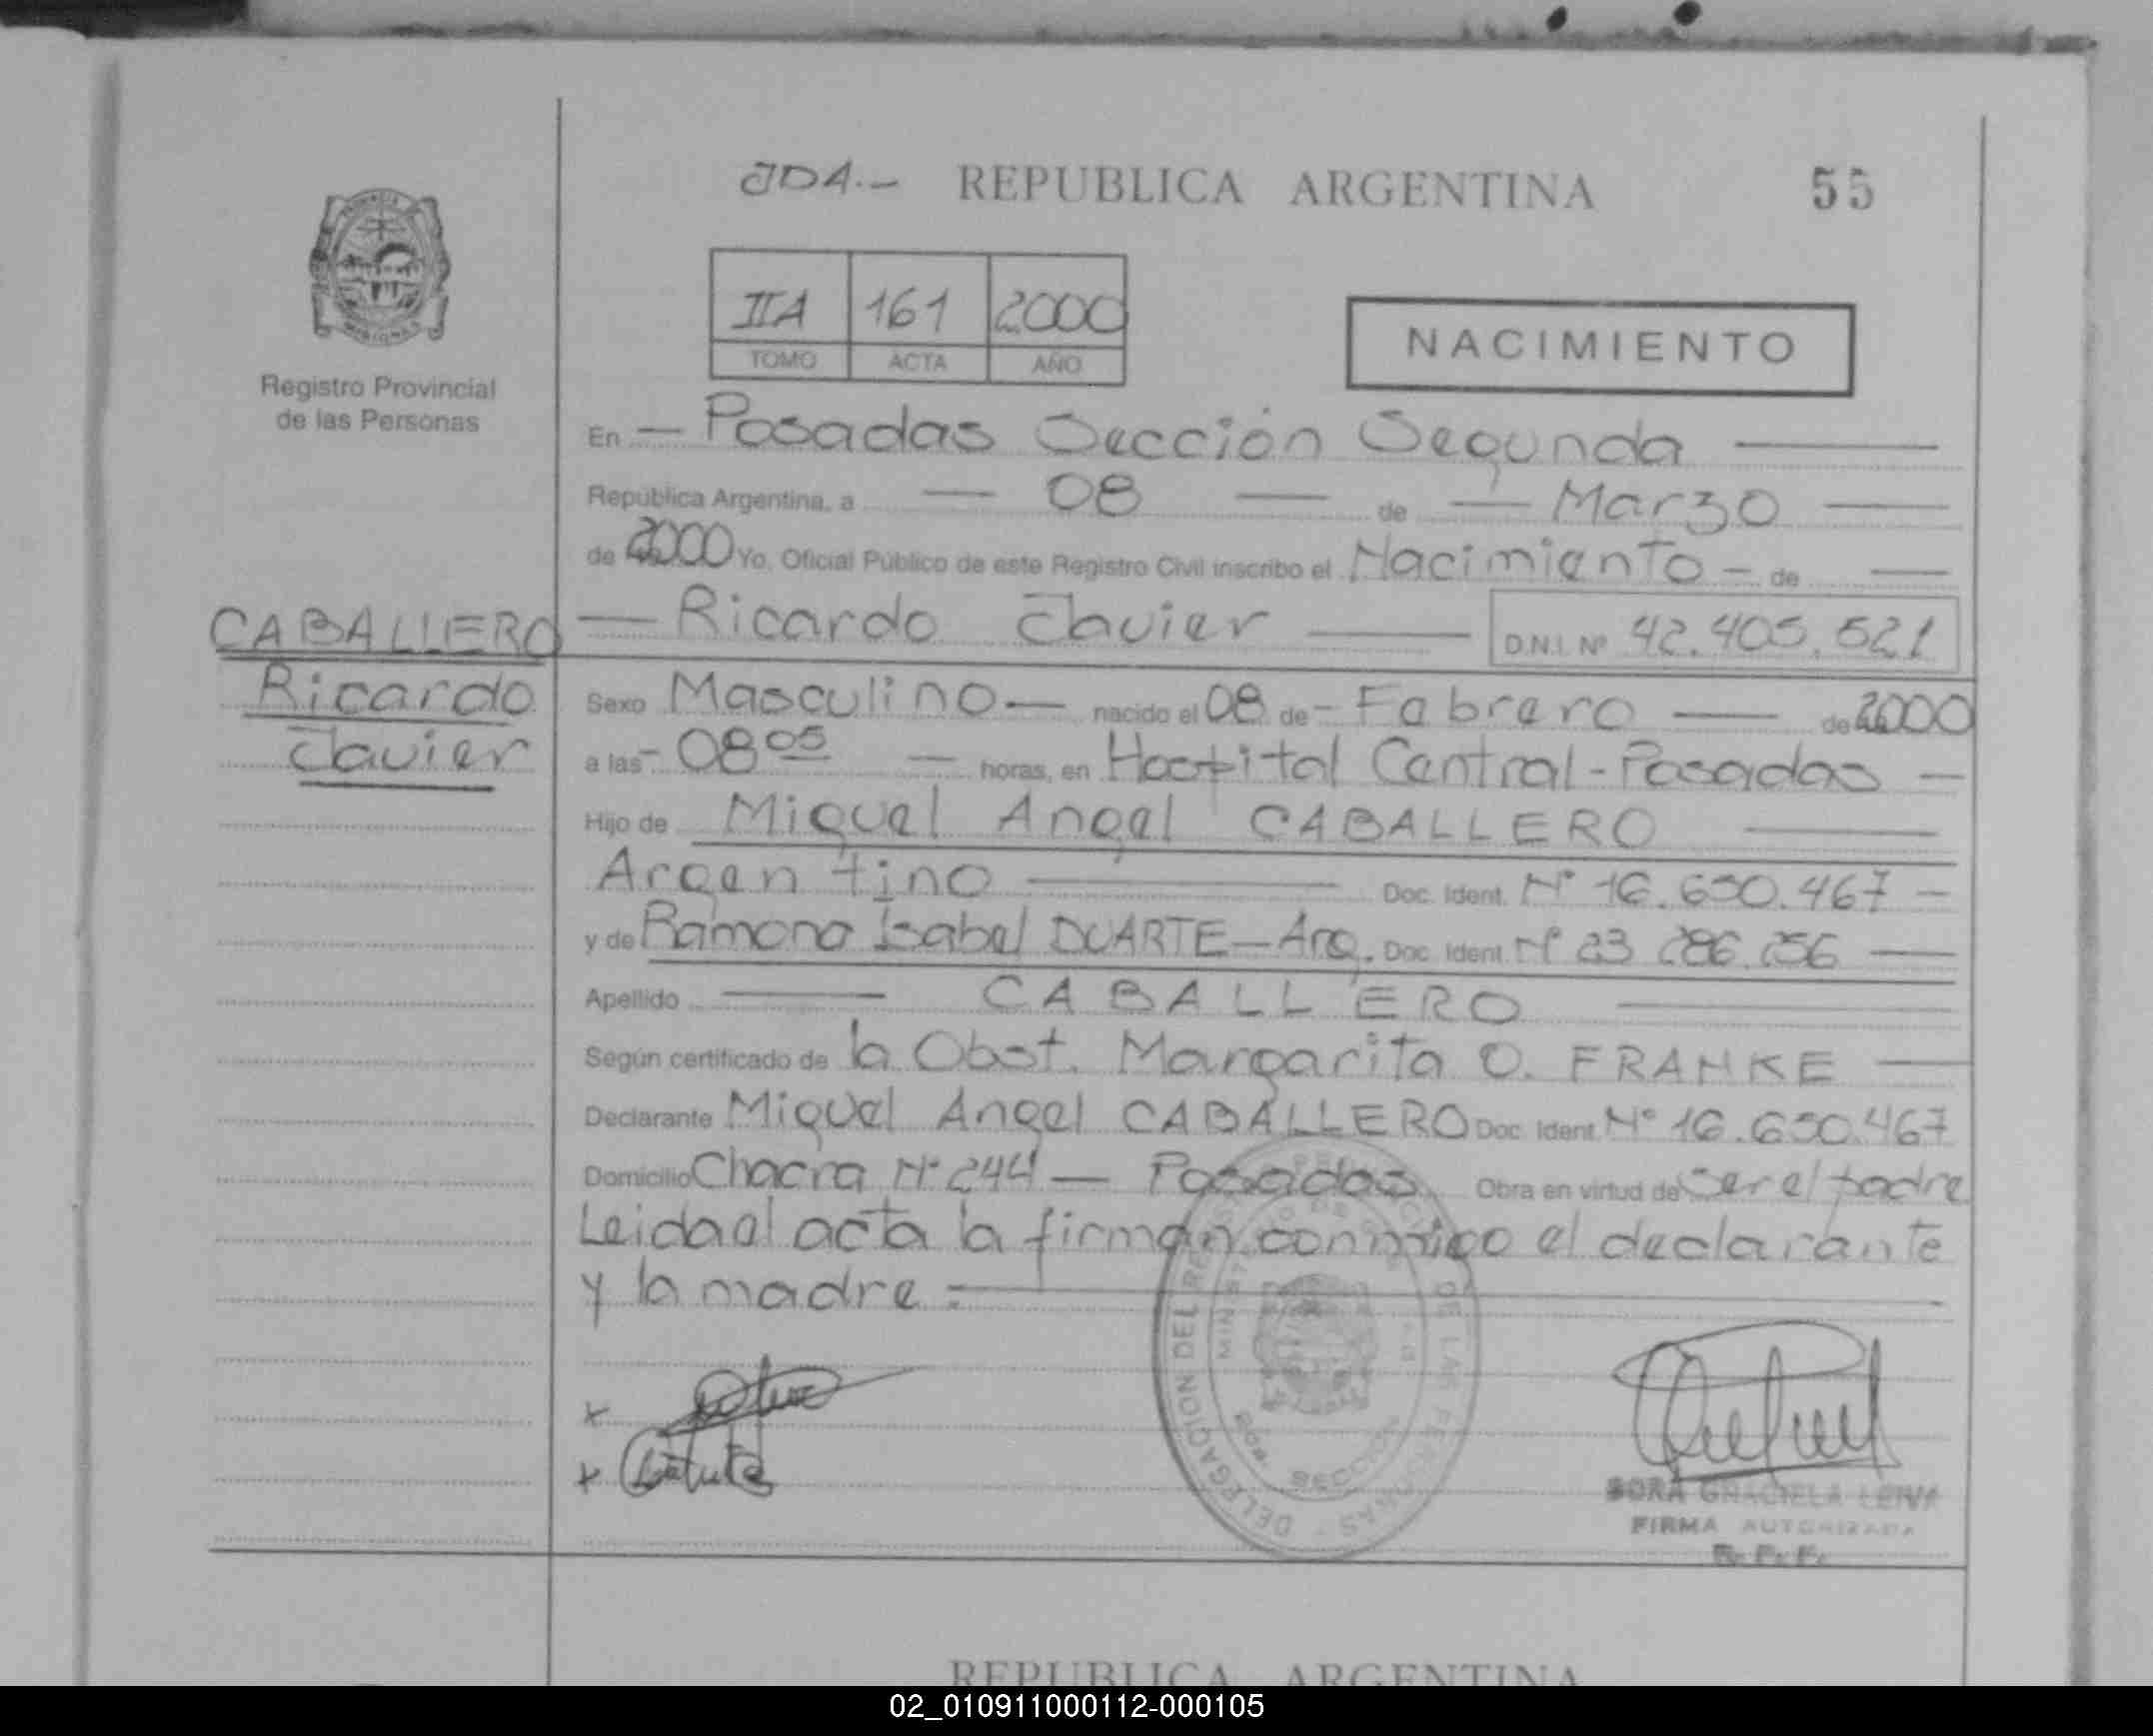 JDA.- REPUBLICA ARGENTINA 55
IIA 161 2000
TOMO ACTA AÑO
NACIMIENTO
Registro Provincial
de las Personas
En — Posadas Sección Segunda —
República Argentina, a — 08 — de — Marzo —
de 2000 Yo, Oficial Público de este Registro Civil inscribo el Nacimiento - de —
CABALLERO — Ricardo Javier — D.N.I. Nº 42.405.521
Ricardo
Javier
Sexo Masculino — nacido el 08 de - Febrero — de 2000
a las - 08 05 — horas, en Hospital Central - Posadas —
Hijo de Miguel Angel CABALLERO —
Argentino — Doc. Ident. Nº 16.650.467 —
y de Ramona Isabel DUARTE — Arg. Doc. Ident. Nº 23 286.256 —
Apellido — CABALLERO —
Según certificado de la Obst. Margarita O. FRANKE —
Declarante Miguel Angel CABALLERO Doc. Ident. Nº 16.650.467
Domicilio Chacra Nº 244 — Posadas Obra en virtud de ser el padre
Leida el acta la firman conmigo el declarante
y la madre.—
DELEGACION DEL DE LAS PERSONAS
SECCION
x
x
GRACIELA LEIVA
FIRMA AUTORIZADA
REPUBLICA ARGENTINA
02_010911000112-000105